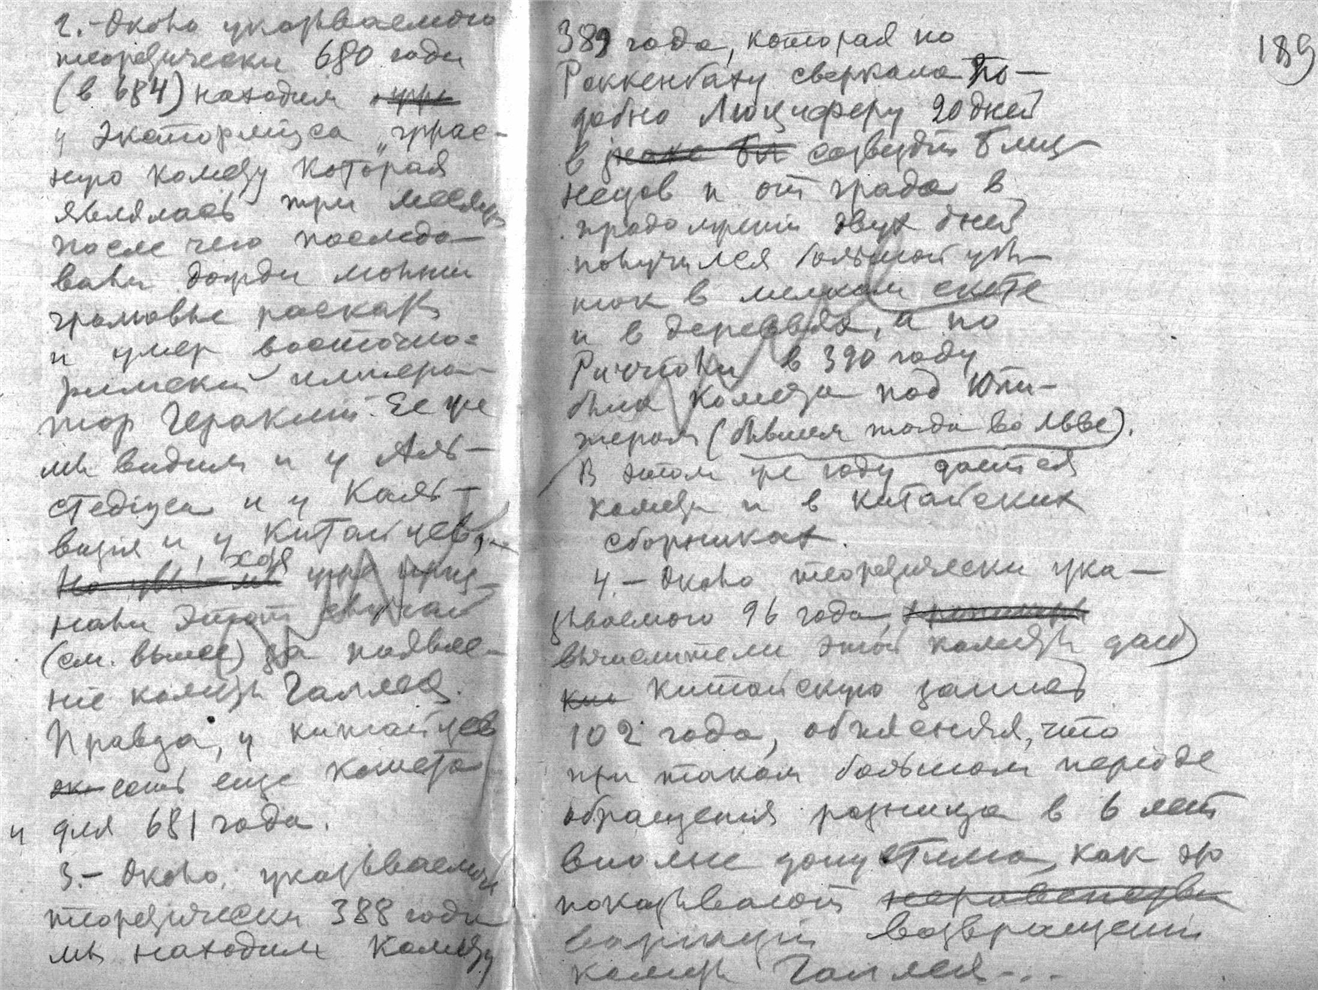 2.- Около указываемого
теоретически 680 года
(в 684) находим
у Экстормиуса "ужас-
ную комету которая
являлась три месяца
после чего последо-
вали дожди молнии
громовые раскаты
и умер восточно-
римский импера-
тор Гераклий. Ее же
мы видим и у Аль-
стедиуса и у Каль-
визия и у Китайцев,
хотя
уже приз-
нали этот случай
(см. выше) за появле-
ние кометы Галлея.
Правда, у китайцев
есть еще комета
и для 681 года.
3.- Около указываемого
теоретически 388 года
мы находим комету
189
389 года, которая по
Роккенбаху сверкала по-
добно Люциферу 20 дней
в созвездии Близ-
нецов и от града в
продолжении двух дней
получился большой убы-
ток в мелком скоте
и в деревьях, а по
Риччиоли в 390 году
была комета под Юпи-
тером (бывшем тогда во Льве).
В этом же году дается
комета и в китайских
сборниках.
4.- Около теоретически ука-
зываемого 96 года
вычислители этой кометы дают
китайскую запись
102 года, объясняя, что
при таком большом периоде
обращения разница в 6 лет
вполне допустима, как это
показывают
вариации возвращений
кометы Галлея...